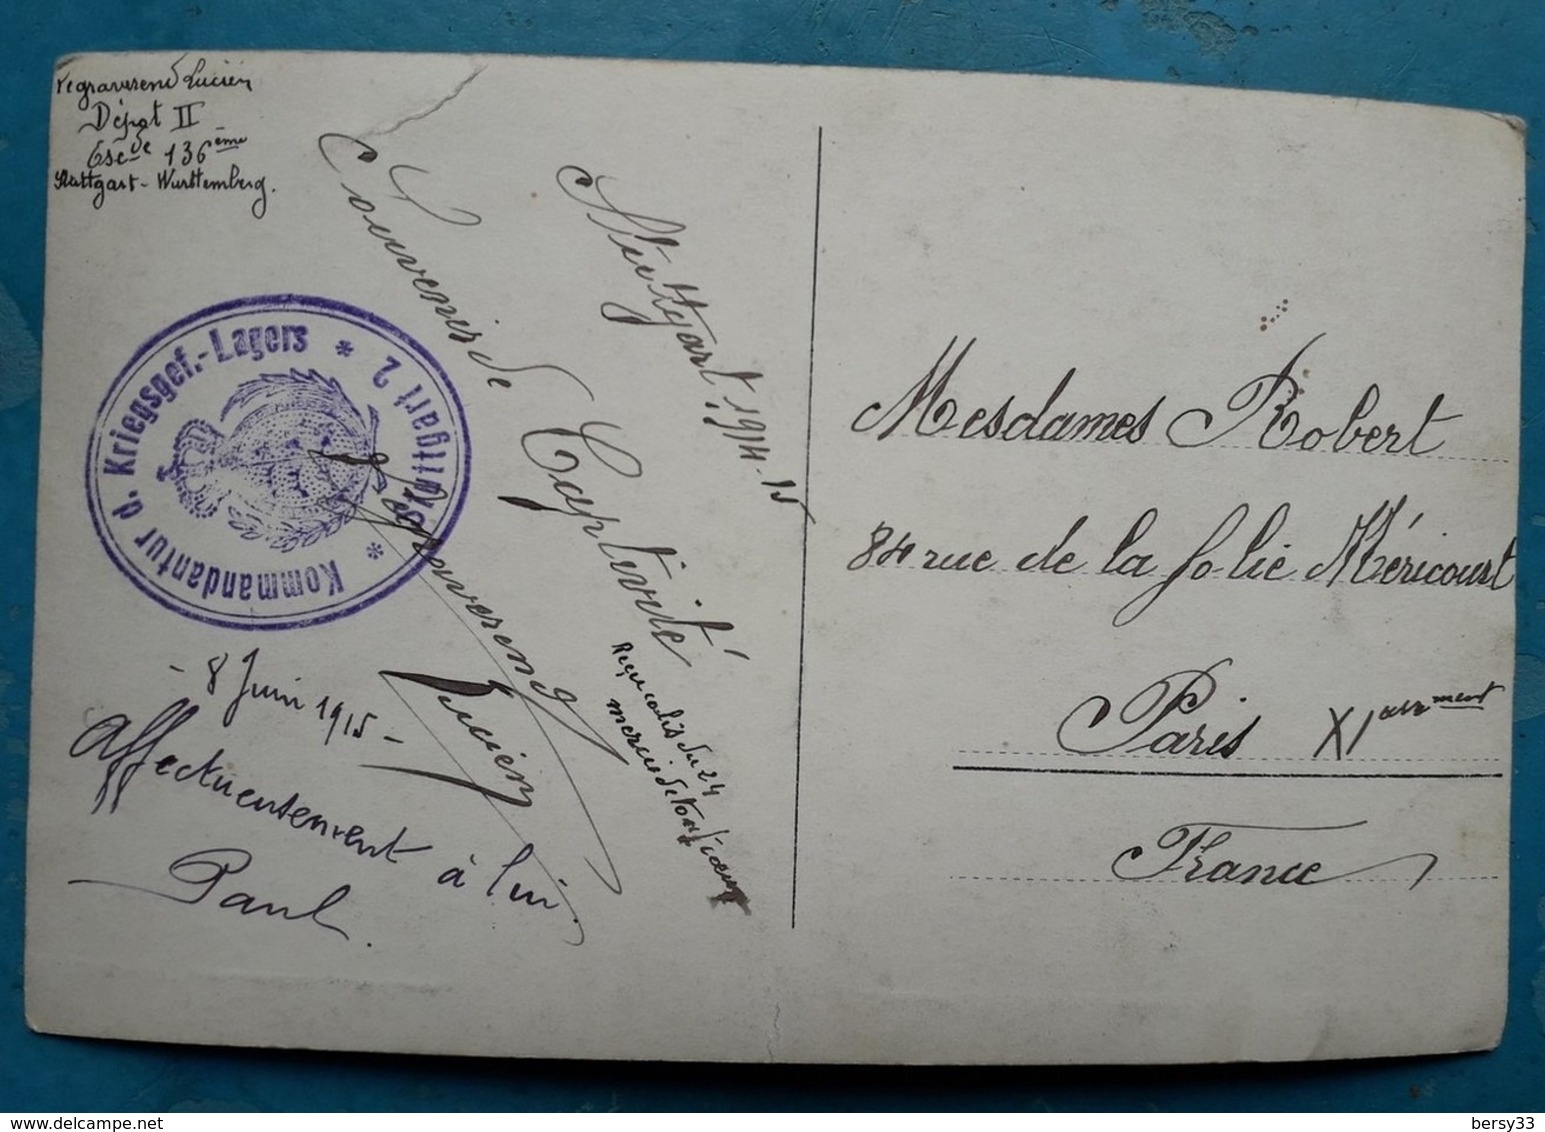 Legraverend Lucien
Dépôt II
Esc.de 136ème
Stuttgart - Wurttemberg.
Stuttgart, 1914-15
Souvenir de Captivité
Legraverend
Lucien
Kommandantur d. Kriegsgef.-Lagers * Stuttgart 2 *
Reçu colis du 24
merci de tout cœur
- 8 Juin 1915 -
affectueusement à lui.
Paul.
Mesdames Robert
84 rue de la folie Méricourt
Paris XI arrment
France
bersy33